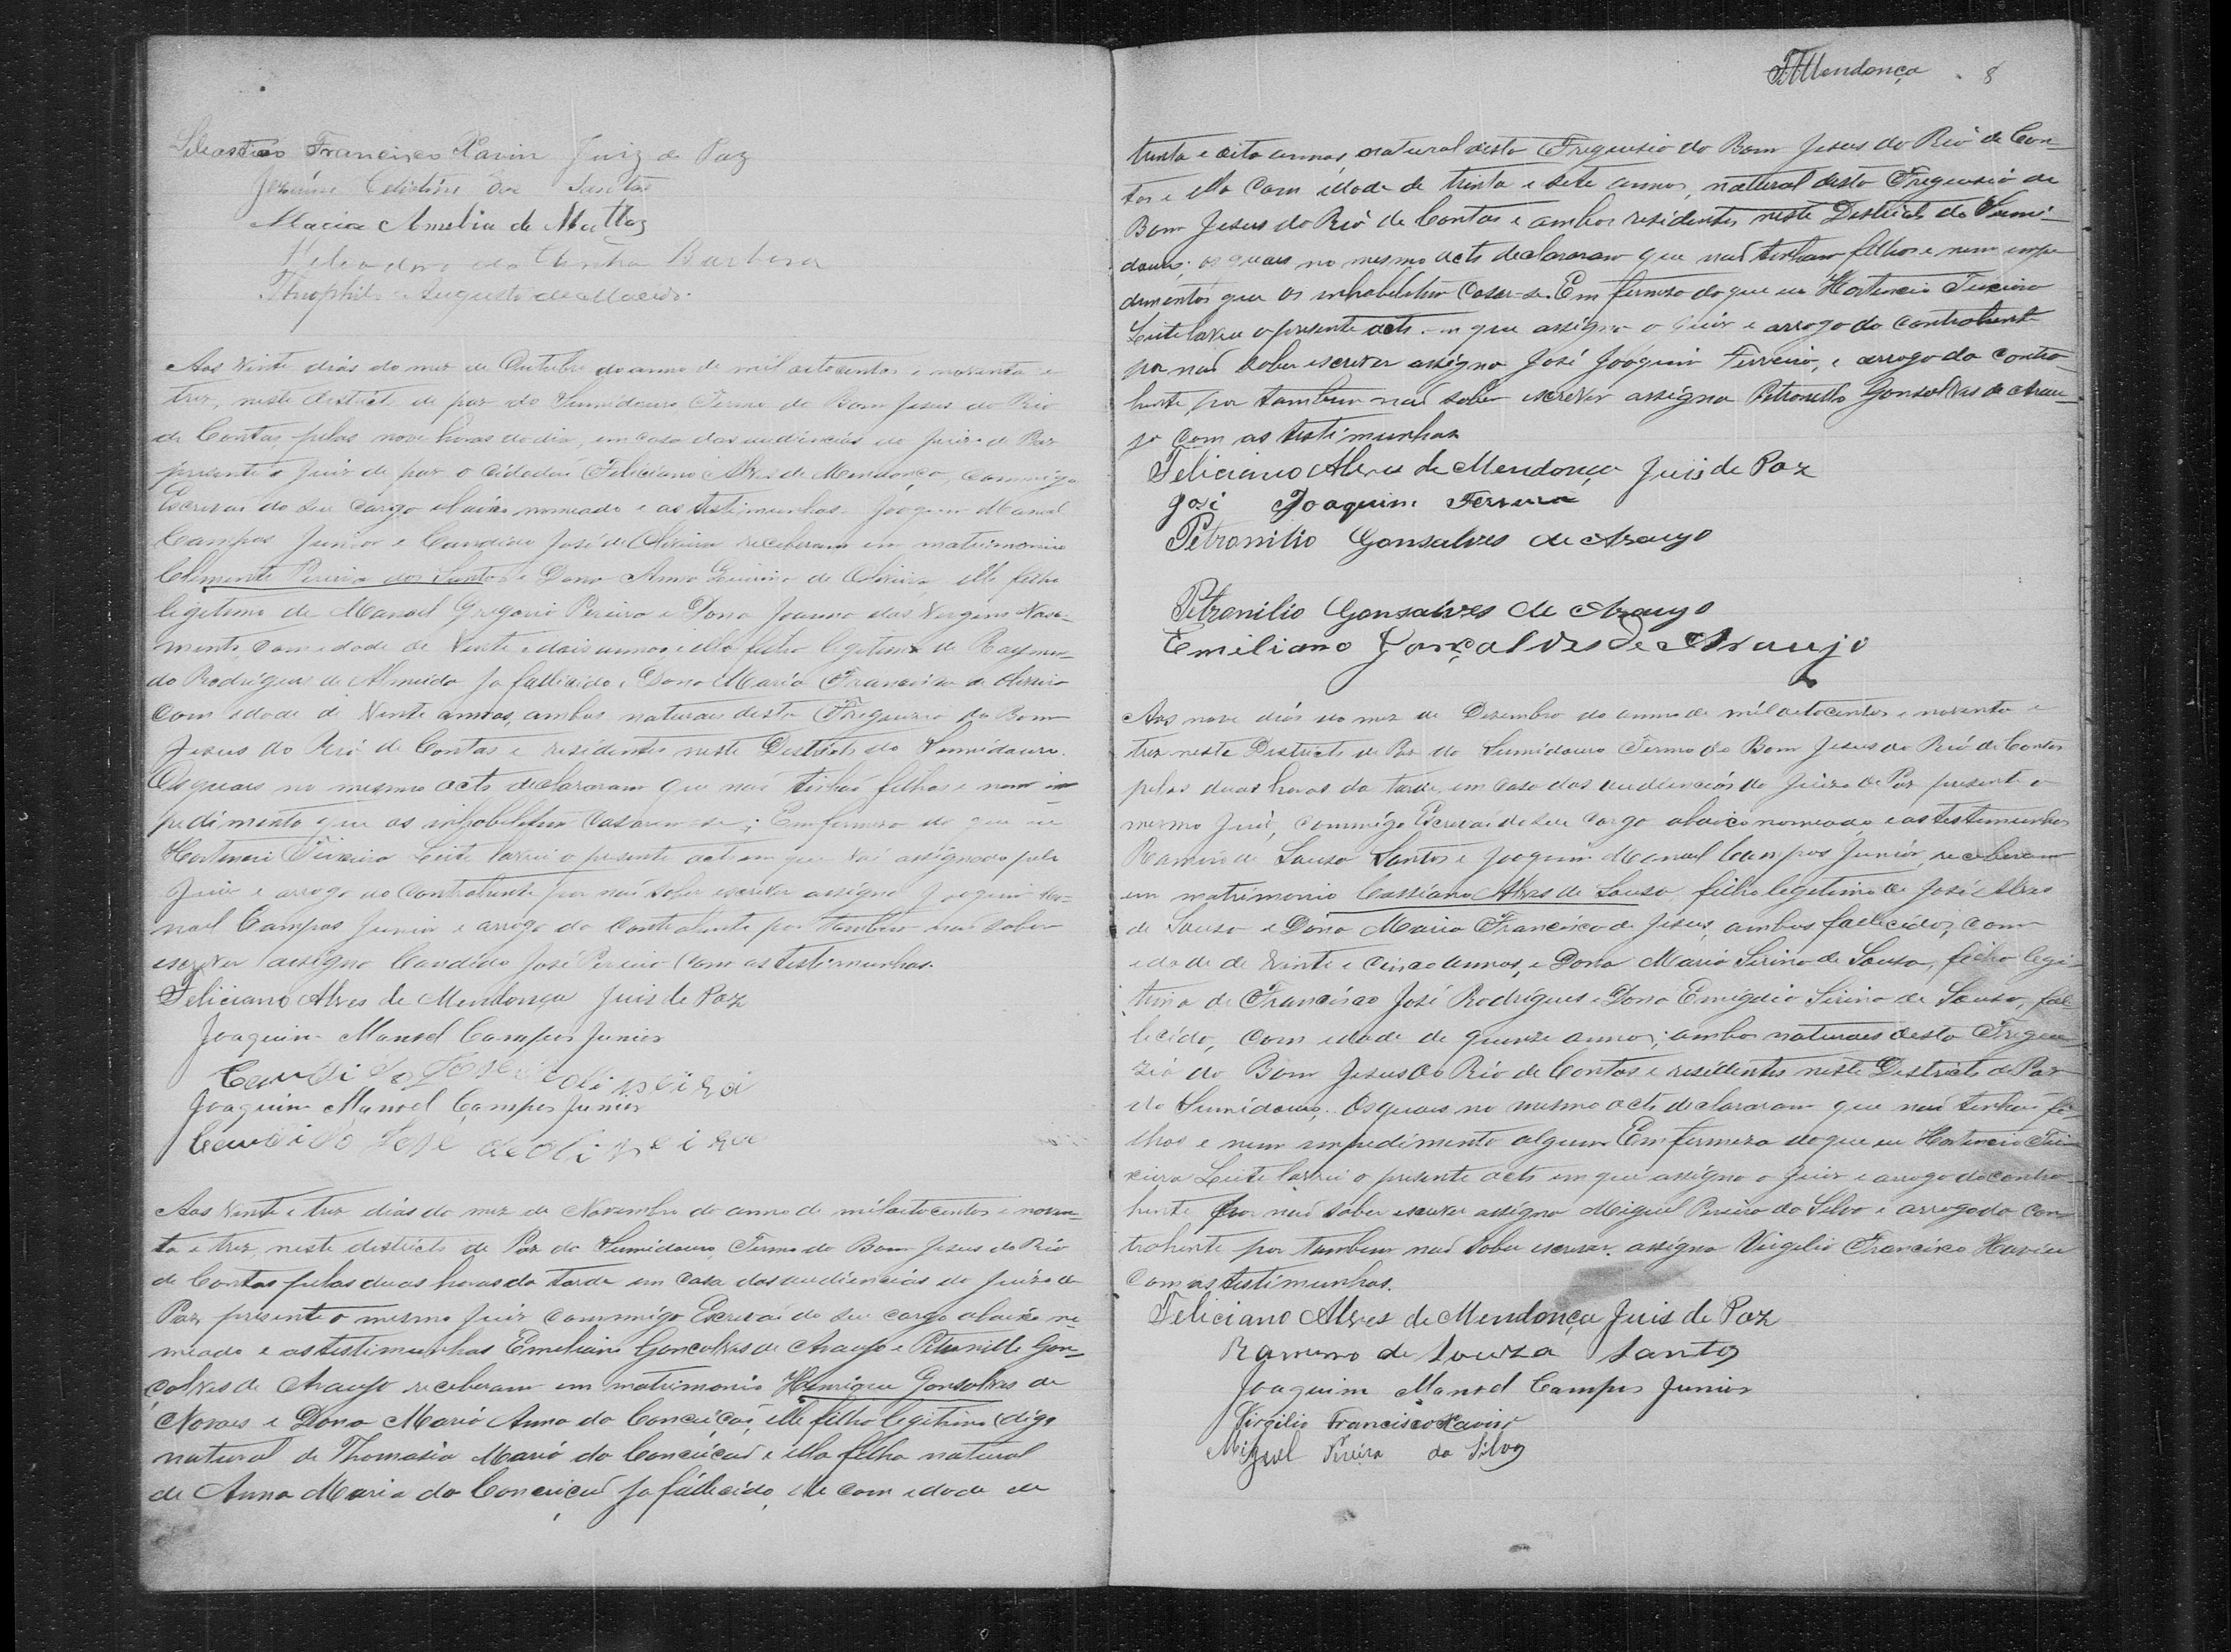 Sebastião Francisco Xavier Juiz de Paz
Celestino dos Santos
Maria Amelia de Mattos
Heliodoro da Cunha Barbosa
Theophilo Augusto de Macedo.
Aos vinte dias do mez de Outubro do anno de mil oitocentos e noventa e
trez, neste districto de paz do Sumidouro Termo do Bom Jesus do Rio
de Contas, pelas nove horas do dia, em casa das audiencias do Juizo de Paz
presente o Juiz de paz o cidadão Feliciano Alves de Mendonça, commigo
Escrivaõ do seu cargo abaixo nomeado e as testimunhas Joaquim Manoel
Campos Junior e Candido José de Oliveira receberam em matrimonio
Clemente Pereira dos Santos e Dona Anna de Oliveira elle filho
legitimo de Manoel Gregorio Pereira e Dona Joanna das Virgens Nasci-
mento, com edade de vinte e dois annos, e ella filha legitima de Raymun-
do Rodrigues de Almeida ja fallicido e Dona Maria Francisca de Oliveira
com edade de vinte annos, ambos naturaes desta Freguezia do Bom
Jesus do Rio de Contas e residentes neste Districto do Sumidouro.
Os quaes no mesmo acto declararam que naõ tinhaõ filhos e nem im-
pedimento que os inhabelitem casarem-se; Em fermeza do que eu
Hortencio Teixeira Leite lavrei o presente acto em que vai assignado pelo
Juiz e arrogo do contrahente por naõ saber escrever assigna Joaquim Ma-
noel Campos Junior e arrogo da contrahente por tambem naõ saber
escrever assigna Candido José Pereira com as testimunhas.
Feliciano Alves de Mendonça Juis de Paz
Joaquim Manoel Campos Junior
Candido José de oliveira
Joaquim Manoel Campos Junior
Candido José de oliveira
Aos vinte e trez dias do mez de Novembro do anno de mil oitocentos e noven-
ta e trez, neste districto de Paz do Sumidouro, Termo do Bom Jesus do Rio
de Contas pelas duas horas da tarde em casa das audiencias do Juizo de
Paz presente o mesmo Juiz commigo Escrivaõ do seu cargo abaixo no-
meado e as testimunhas Emeliano Goncalves de Araujo e Petronillo Gon-
çalves de Araujo receberam em matrimonio Henrique Gonsalves de
Novaes e Dona Maria Anna da Conceiçaõ, elle filho legitimo (digo
natural de Thomasia Maria da Conceiçaõ e ella filha natural
de Anna Maria da Conceiçaõ ja fallecida, elle com edade de
FAMendonça 8
trinta e oito annos, natural desta Freguesia do Bom Jesus do Rio de Con-
tas e ella com idade de trinta e sete annos, natural desta Freguesia do
Bom Jesus do Rio de Contas e ambos residentes neste Districto do Sumi-
douro; os quaes no mesmo acto declararam que naõ tinham filhos e nem impe-
dimentos que os inhabelitem casar-se. Em fermeza do que eu Hortencio Teixeira
Leite lavrei o presente acto em que assigna o Juiz e arrogo do contrahente
por naõ saber escrever assigna José Joaquim Ferreira, e arrogo da contra-
hente por tambem naõ saber escrever assigna Petronillo Gonsalves de Arau-
jo com as testimunhas
Feliciano Alves de Mendonça Juis de Paz
José Joaquim Ferreira
Petronilio Gonsalves de Araujo
Petronilio Gonsalves de Araujo
Emiliano Gonçalves de Araujo
Aos nove dias do mez de Dezembro do anno de mil oitocentos e noventa e
trez neste Districto de Paz do Sumidouro Termo do Bom Jesus do Rio de Contas
pelas duas horas da tarde, em casa das audiencias do Juizo de Paz presente o
mesmo Juiz, commigo Escrivaõ do seu cargo abaixo nomeado e as testemunhas
Ramiro de Sousa Santos e Joaquim Manoel Campos Junior, receberam
em matrimonio Cassiano Alves de Sousa filho legitimo de José Alves
de Sousa e Dona Maria Francisca de Jesus, ambos fallecidos, com
edade de vinte e cinco annos, e Dona Maria Sirina de Sousa, filha legi-
tima de Francisco José Rodrigues e Dona Emigdia Sirina de Sousa, fal-
lecida, com edade de quinze annos; ambos naturaes desta Fregue-
zia do Bom Jesus do Rio de Contas e residentes neste Districto de Paz
do Sumidouro. Os quaes no mesmo acto declararam que naõ tinham fi-
lhos e nem impedimento algum Em fermeza do que eu Hortencio Tei-
xeira Leite lavrei o presente acto em que assigna o Juiz e arrogo do contra-
hente por naõ saber escrever assigna Miguel Pereira da Silva e arrogo da con-
trahente por tambem naõ saber escrever. assigna Virgilio Francisco Xavier
com as testimunhas.
Feliciano Alves de Mendonça Juis de Paz
Ramiro de Souza Santos
Joaquim Manoel Campos Junior
Virgilio Francisco Xavier
Miguel Pereira da Silva